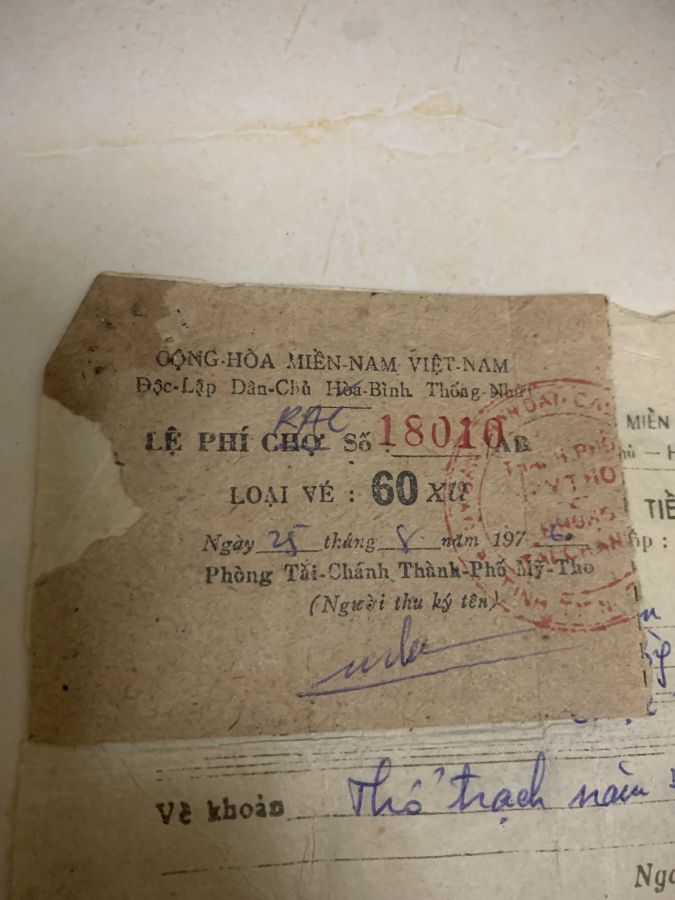 CỘNG-HÒA MIỀN-NAM VIỆT-NAM
Độc-Lập Dân-Chủ Hòa-Bình Thống-Nhứt
RÁC
LỆ PHÍ CHỢ Số 18010 /AB
LOẠI VÉ : 60 XU
Ngày 25 tháng 8 năm 1976
Phòng Tài-Chánh Thành-Phố Mỹ-Tho
(Người thu ký tên)
MIỀN
hủ – H
TIỀ
Về khoản Thổ trạch năm
Ngà